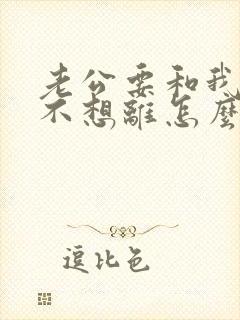 老公要和我
不想離怎麼
逗比色